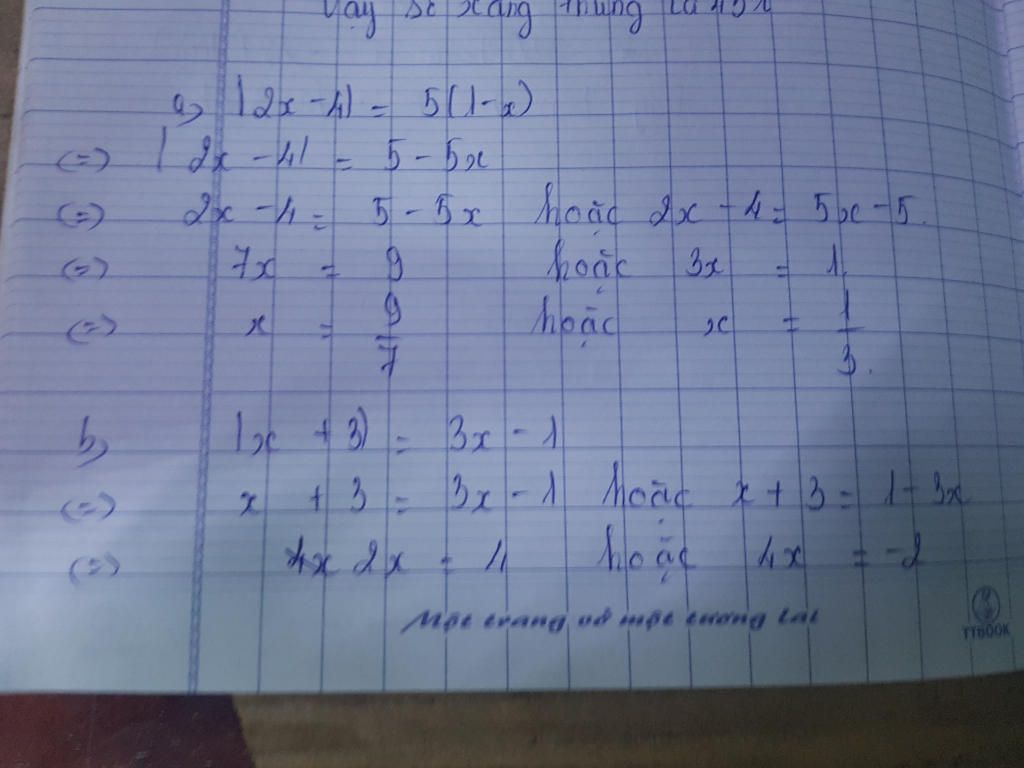 Vậy số xăng thùng là
a, |2x - 4| = 5(1-x)
(=) | 2x - 4| = 5 - 5x
(=) 2x - 4 = 5 - 5x hoặc 2x - 4 = 5x - 5.
(=) 7x = 9 hoặc 3x = 1
(=) x = 9/7 hoặc x = 1/3.
b, |x + 3| = 3x - 1
(=) x + 3 = 3x - 1 hoặc x + 3 = 1 - 3x
(=) 2x = 4 hoặc 4x = -2
Một trang vở một tương lai
TTBOOK